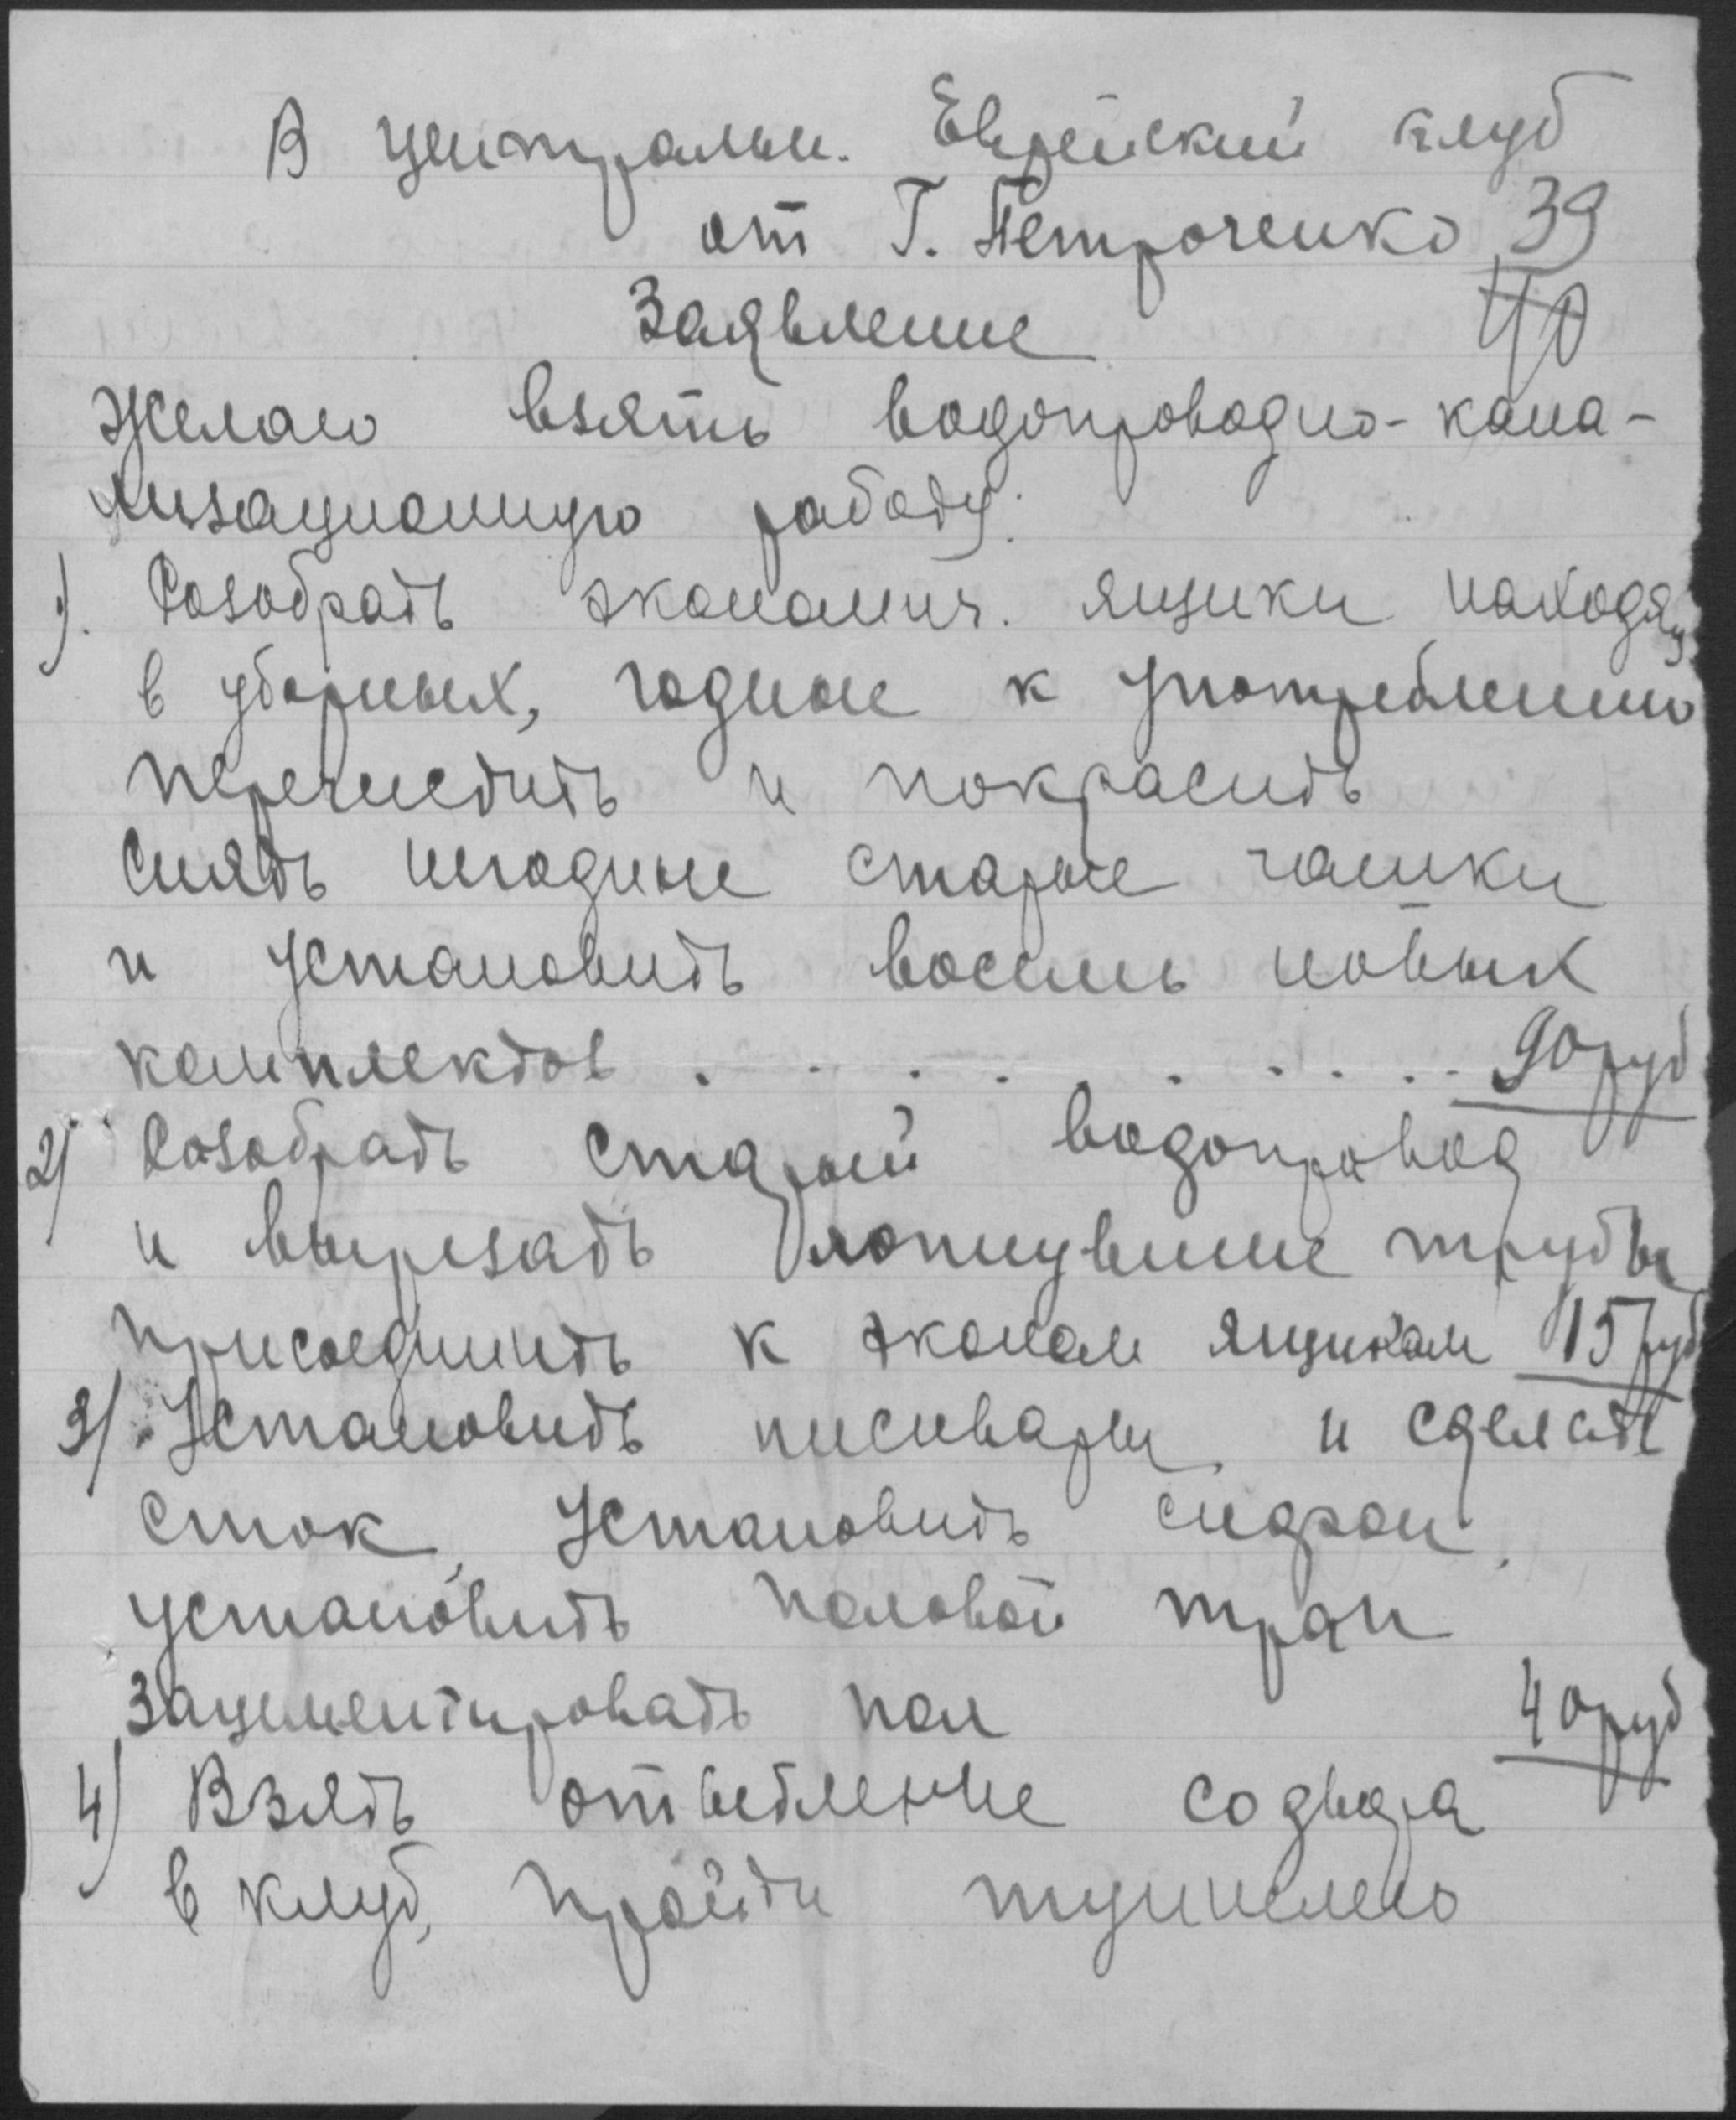 В централн. Еврейский клуб
от Г. Петроченко 39
40
Заявление
Желаю взять водопроводно-кана-
лизационную работу:
1). Розобрать экономич. ящики находящ.
в уборных, годные к употреблению
перечистить и покрасить
Снять негодные старые чашки
и установить восемь новых
комплектов . . . . . . . . . 90 руб
2) Розобрать старый водопровод
и вырезать лопнувшие трубы
присоединить к эконом ящикам 15 руб
3) Установить писивары и сделать
сток, Установить сифон,
установить половой трап
зацементировать пол 40 руб
4) Взять ответление со двора
в клуб, пройти туннелью